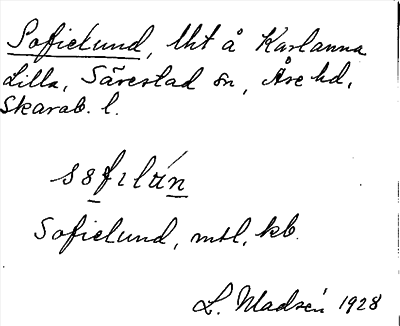 Sofielund, lht å Karlanna
Lilla, Särestad sn, Åse hd,
Skarab. l.
Sofielund, mtl, kb.
L. Madsén 1928